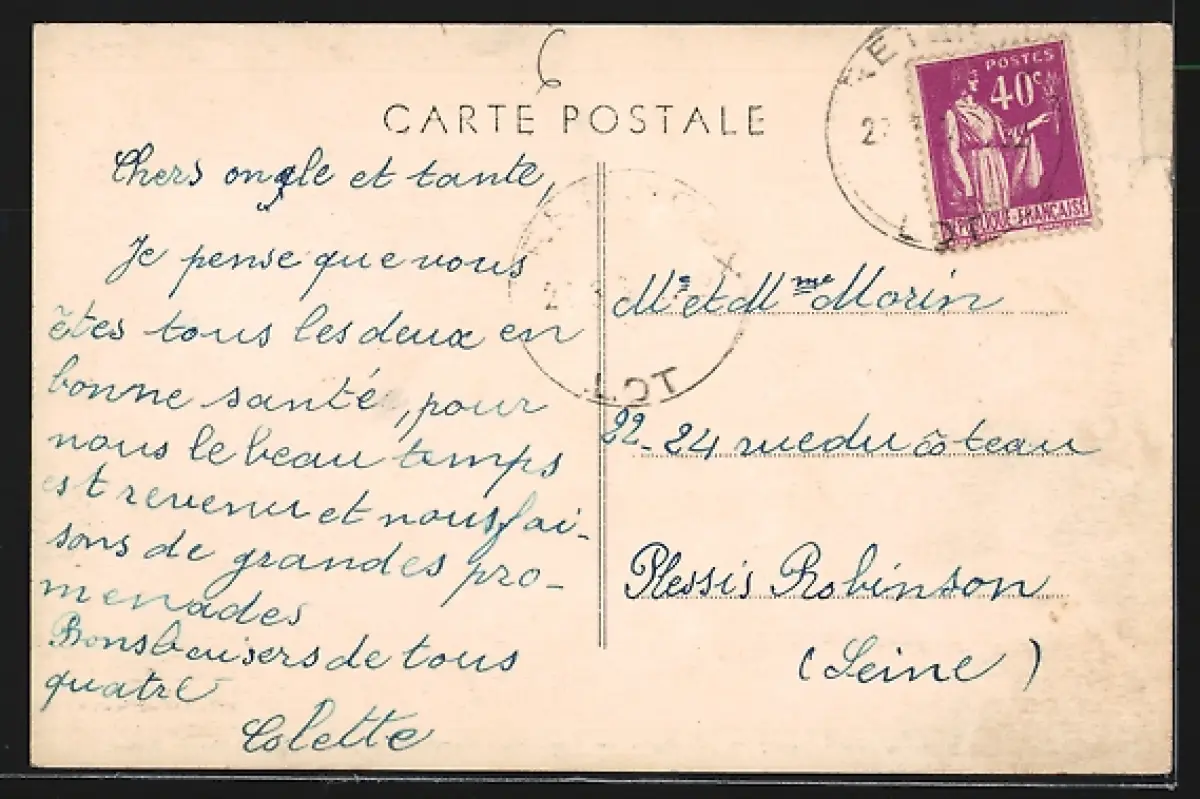 6
CARTE POSTALE
Chers oncle et tante,
Je pense que vous
êtes tous les deux en
bonne santé, pour
nous le beau temps
est revenu et nous fai-
sons de grandes pro-
menades
Bons baisers de tous
quatre
Colette
POSTES
40c
RÉPUBLIQUE-FRANÇAISE
LOT
LOT
Mr et Mme Morin
22-24 rue du côteau
Plessis Robinson
(Seine)